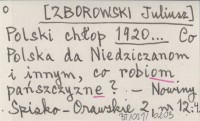 [ZBOROWSKI Juliusz]
Polski chłop 1920... Co
Polska da Niedziczanom
i innym, co robiom
pańszczyznę ? - Nowiny
Spisko-Orawskie 2, nr 12: